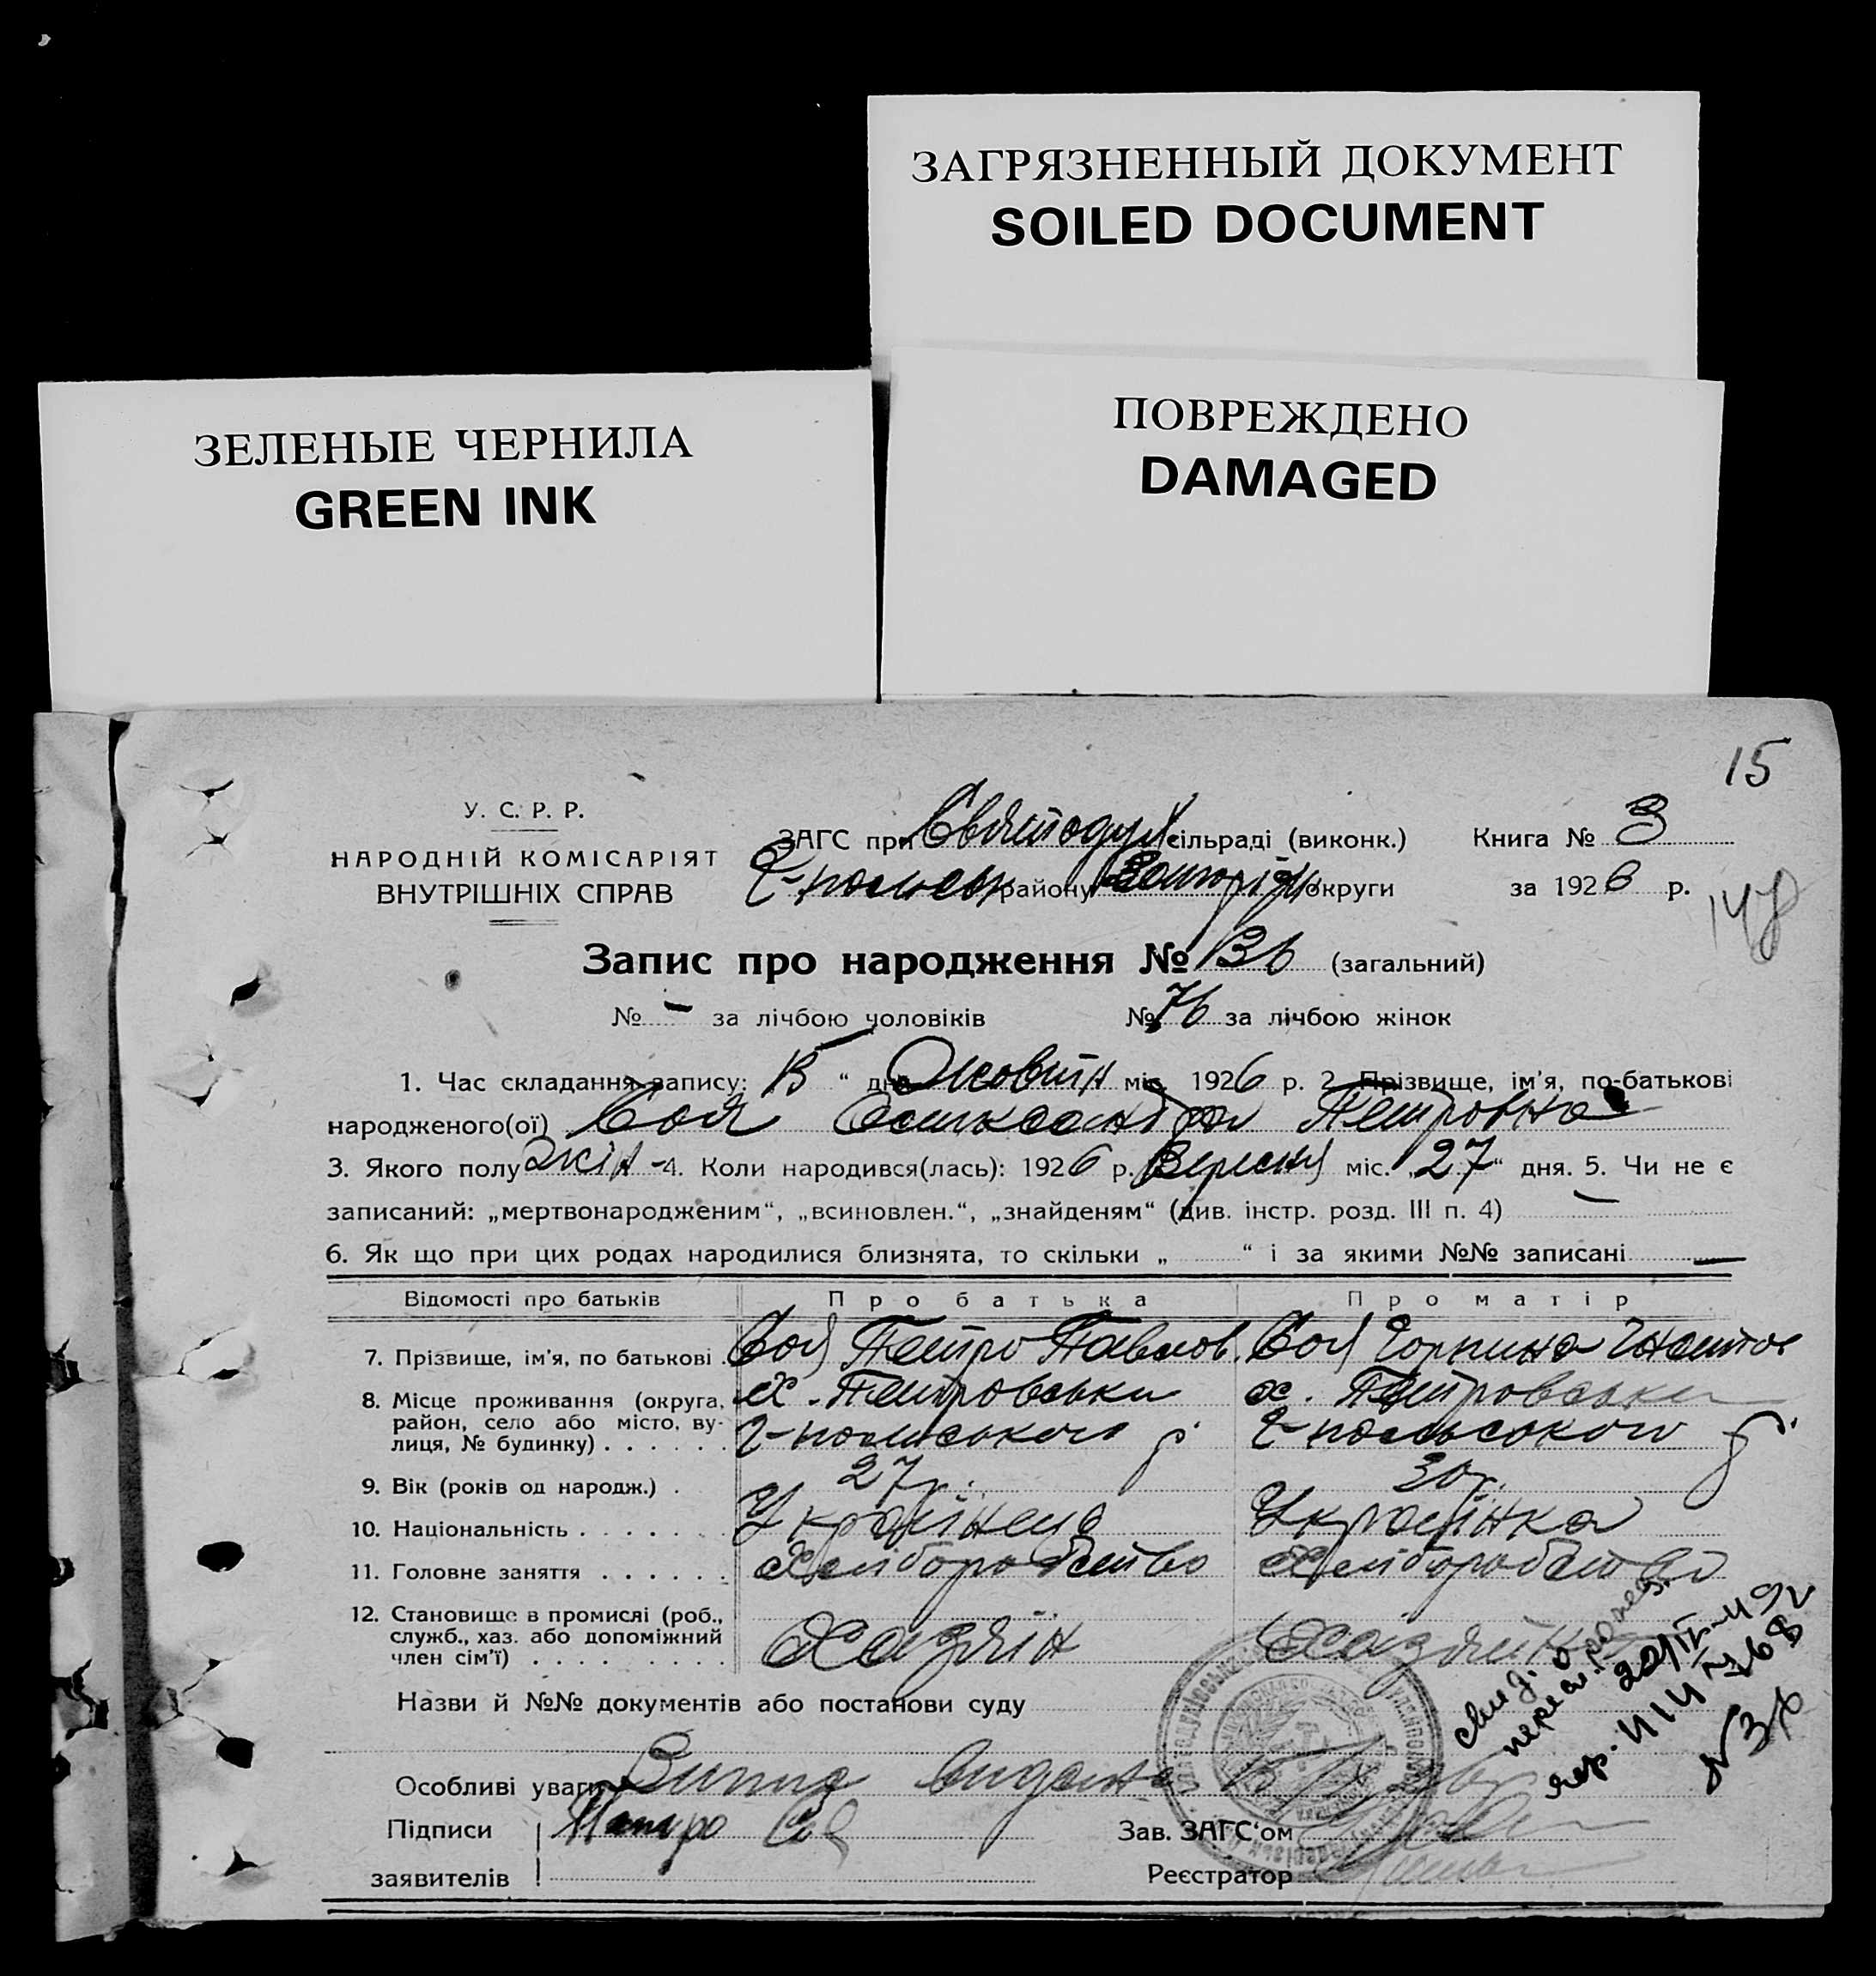 ЗАГРЯЗНЕННЫЙ ДОКУМЕНТ
SOILED DOCUMENT
ЗЕЛЕНЫЕ ЧЕРНИЛА
GREEN INK
ПОВРЕЖДЕНО
DAMAGED
15
У. С. Р. Р.
НАРОДНІЙ КОМІСАРІЯТ
ВНУТРІШНІХ СПРАВ
ЗАГС при Святодух сільраді (виконк.) Книга № 3
району округи за 1926 р.
Запис про народження № (загальний)
№ - за лічбою чоловіків № 76 за лічбою жінок
1. Час складання запису: “ дня Жовтн міс. 1926 р. 2. Прізвище, ім’я, по-батькові
народженого(ої) Соя Олександра Петровна
3. Якого полу жін - 4. Коли народився(лась): 1926 р. Вересня міс. „27“ дня. 5. Чи не є
записаний: „мертвонародженим“, „всиновлен.“, „знайденям“ (див. інстр. розд. III п. 4) —
6. Як що при цих родах народилися близнята, то скільки „ “ і за якими №№ записані —
Відомості про батьків Про батька Про матір
7. Прізвище, ім’я, по батькові . Соя Петро Павлов. Соя Горпина Гнатов
8. Місце проживання (округа, х. Петровськи х. Петровськи
район, село або місто, ву-
лиця, № будинку) . . . . . . Г-польського р. Г-польського р.
9. Вік (років од народж.) . 27 р. 30 р.
10. Національність . . . . . . . Українець Українка
11. Головне заняття . . . . . . Хліборобство Хліборобство
12. Становище в промислі (роб.,
служб., хаз. або допоміжний Хазяїн Хазяйка
член сім’ї) . . . . . . . . .
Назви й №№ документів або постанови суду
Особливі уваги Випис видана
Підписи Петро Соя Зав. ЗАГС‘ом
заявителів Реєстратор